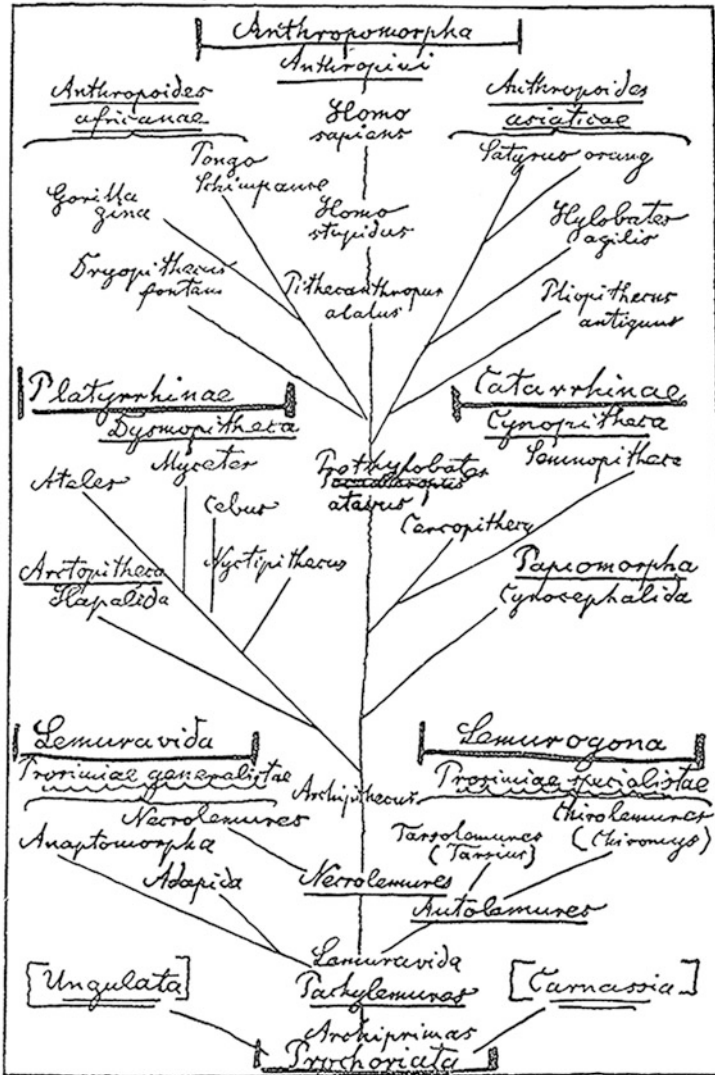 Anthropomorpha
Anthropini
Anthropoides
africanae
Homo
sapiens
Anthropoides
asiaticae
Pongo
Schimpanse
Satyrus orang
Gorilla
gina
Homo
stupidus
Hylobates
agilis
Dryopithecus
fontani
Pithecanthropus
alalus
Pliopithecus
antiquus
Platyrrhinae
Dysmopitheca
Catarrhinae
Cynopitheca
Mycetes
Ateles
Cebus
Prothylobates
atavus
Semnopitheci
Cercopitheci
Arctopitheca
Hapalida
Nyctipithecus
Papiomorpha
Cynocephalida
Lemuravida
Prosimiae generalistae
Necrolemures
Lemurogona
Prosimiae specialistae
Archipithecus
Chirolemures
(Chiromys)
Anaptomorpha
Tarsolemures
(Tarsius)
Adapida
Necrolemures
Autolemures
Lemuravida
Pachylemures
[Ungulata]
[Carnassia]
Archiprimas
Prochoriata